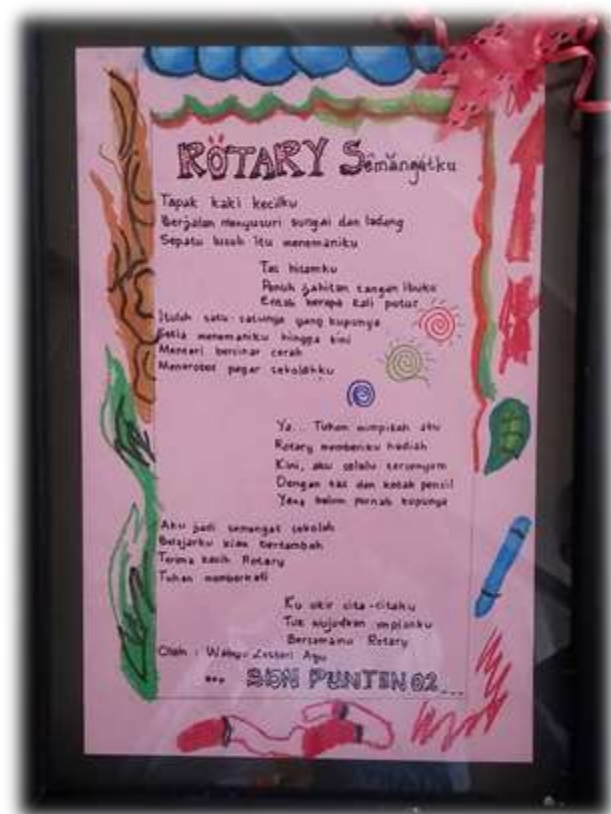 RÖTARY Sëmängatku
Tapak kaki kecilku
Berjalan menyusuri sungai dan ladang
Sepatu lusuh itu menemaniku
Tas hitamku
Penuh jahitan tangan Ibuku
Entah berapa kali putus
Itulah satu-satunya yang kupunya
Setia menemaniku hingga kini
Mentari bersinar cerah
Menerobos pagar sekolahku
Ya... Tuhan mimpikah aku
Rotary memberiku hadiah
Kini, aku selalu tersenyum
Dengan tas dan kotak pensil
Yang belum pernah kupunya
Aku jadi semangat sekolah
Belajarku kian bertambah
Terima kasih Rotary
Tuhan memberkati
Ku ukir cita-citaku
Tuk wujudkan impianku
Bersamamu Rotary
Oleh : Wahyu Lestari Ayu
... SDN PUNTEN 02...